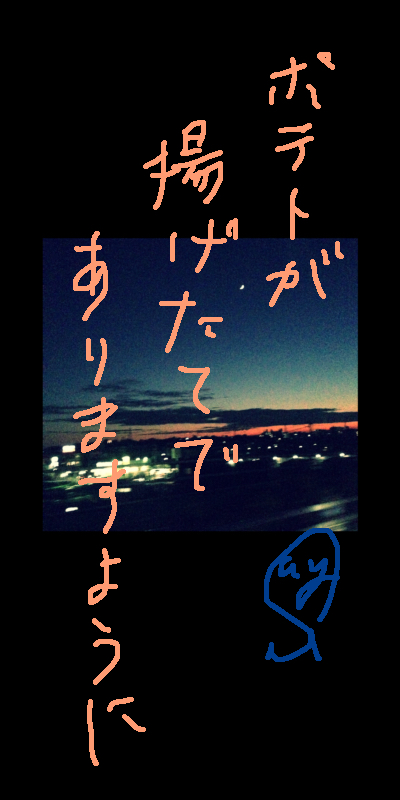 ポテトが
揚げたてで
ありますように